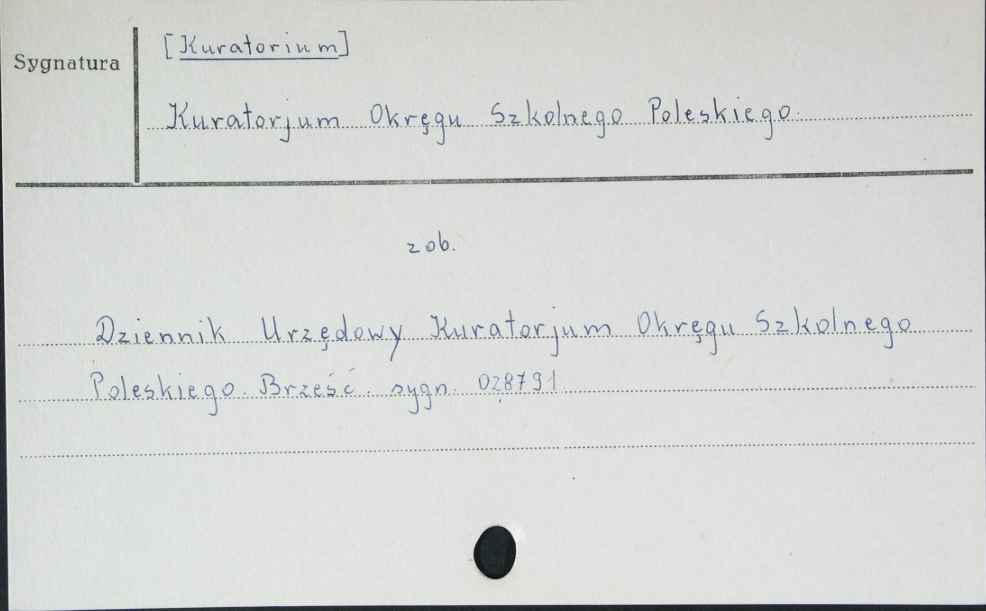 [Kuratorium]
Sygnatura
Kuratorjum Okręgu Szkolnego Poleskiego.
zob.
Dziennik Urzędowy Kuratorjum Okręgu Szkolnego
Poleskiego. Brześć. sygn. 028791